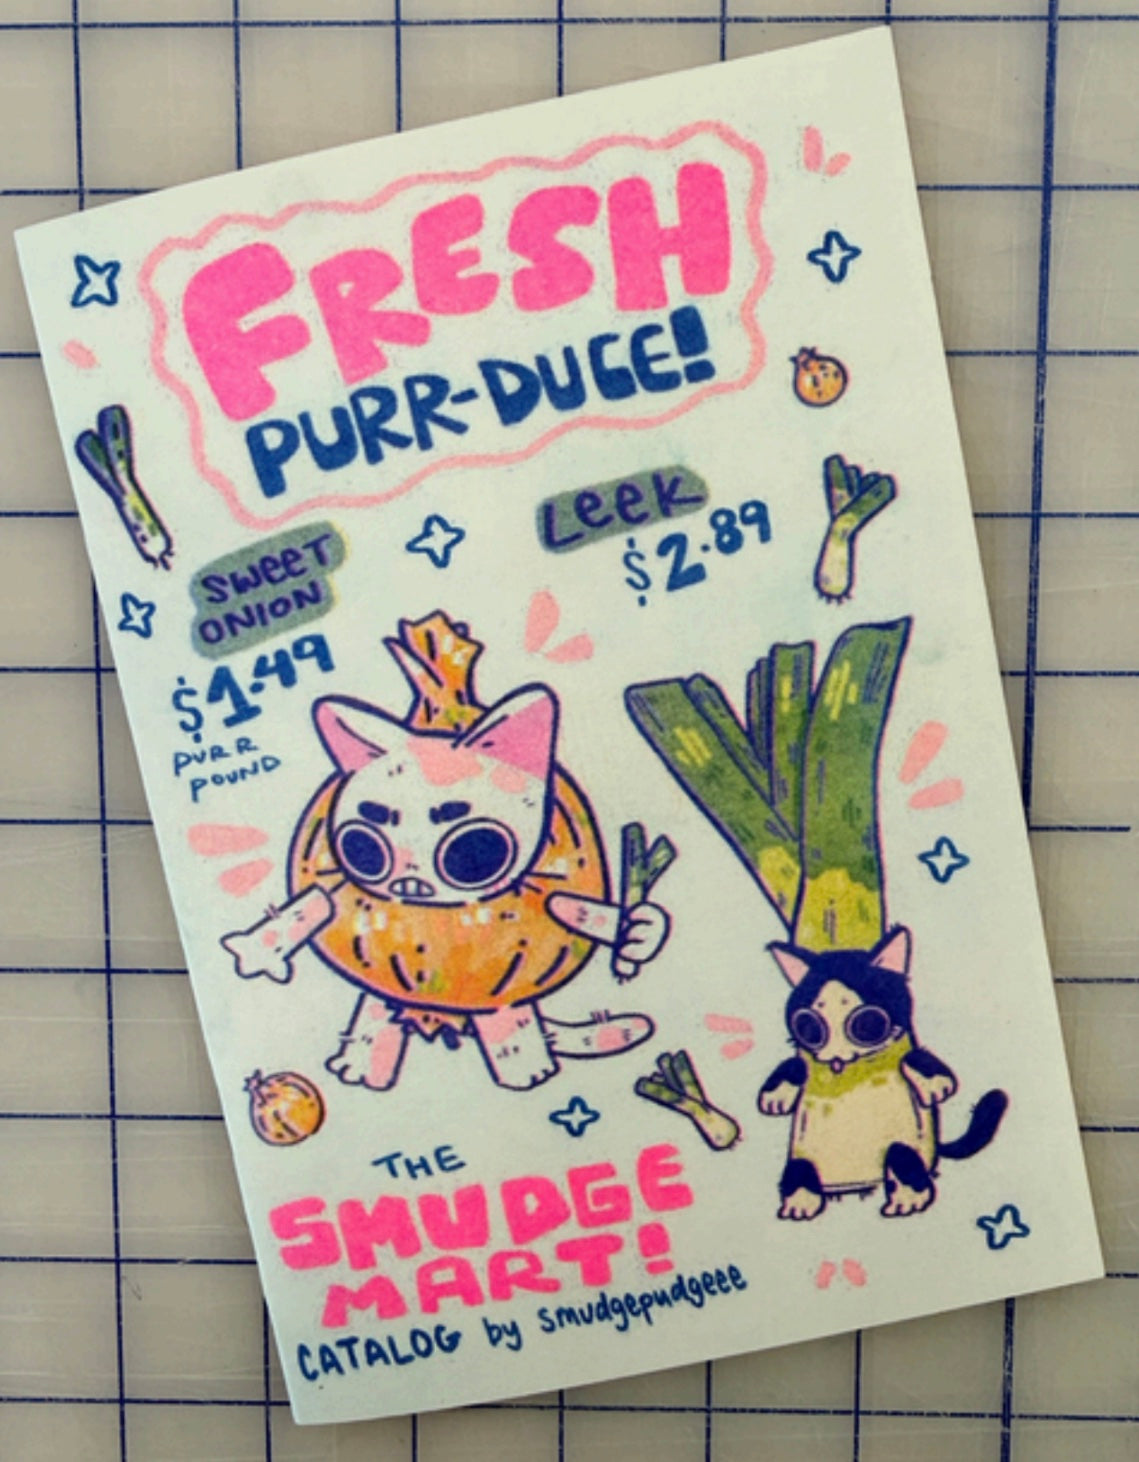 FRESH
PURR-DUCE!
SWEET
ONION
$1.49
PURR
POUND
LEEK
$2.89
THE
SMUDGE
MART!
CATALOG by smudgepudgeee